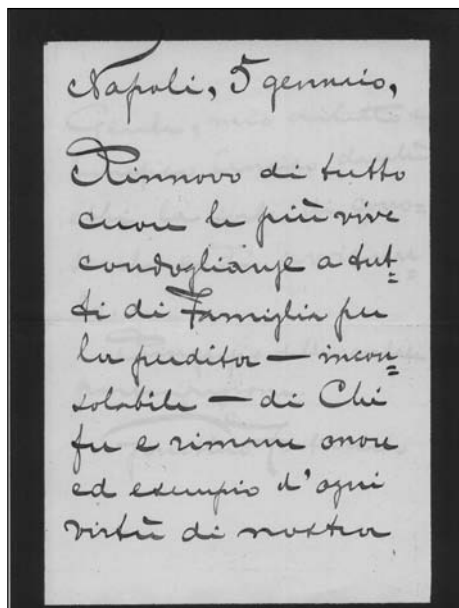 Napoli, 5 gennaio,
Rinnovo di tutto
cuore le più vive
condoglianze a tut=
ti di Famiglia per
la perdita — incon=
solabile — di Chi
fu e rimane onore
ed esempio d'ogni
virtù di nostra